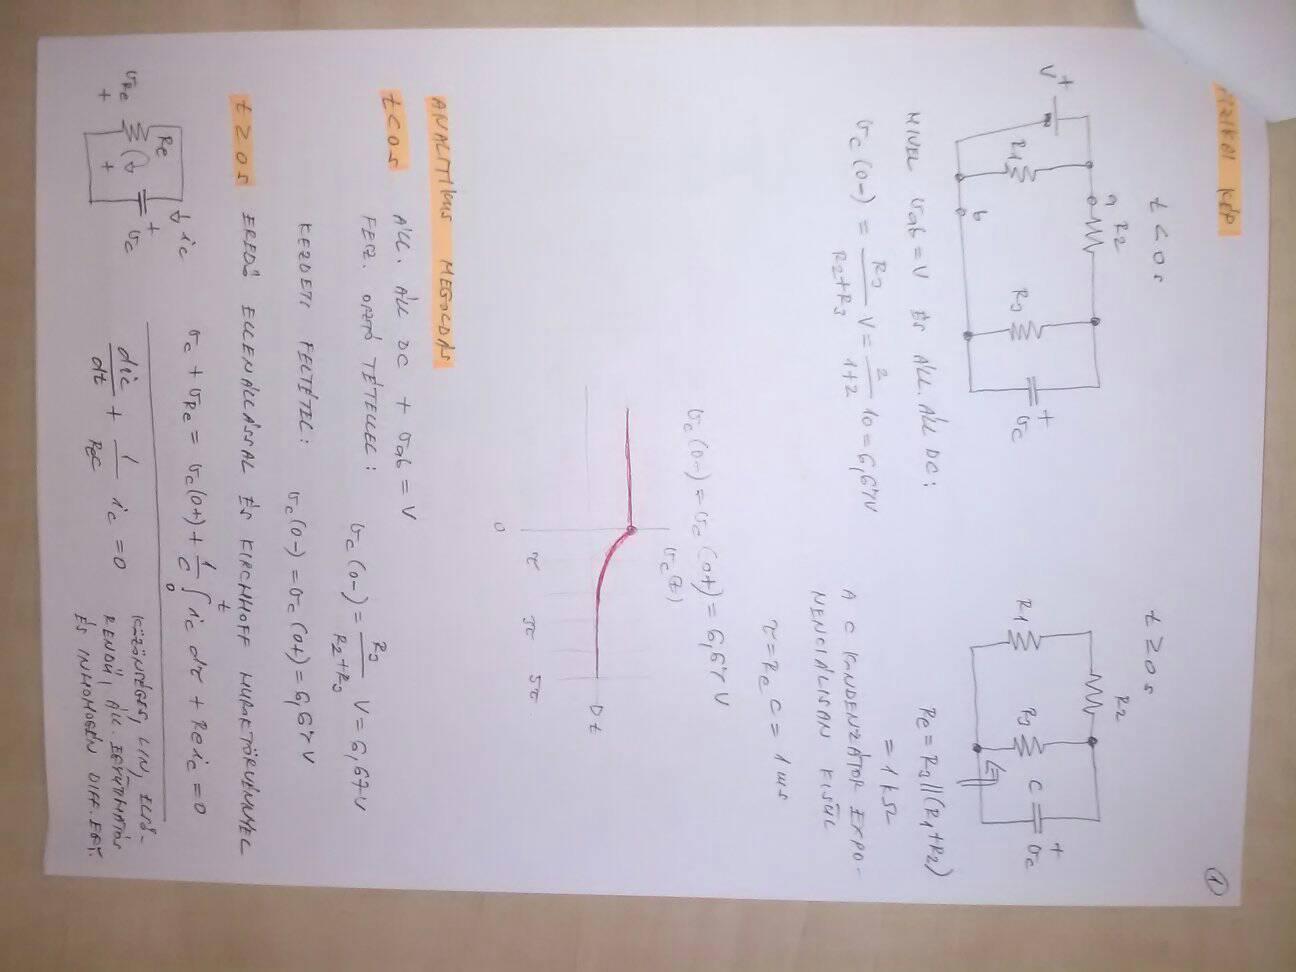 FIZIKAI KÉP
①
t < 0 s
t ≥ 0 s
V +
R1
a
R2
b
R3
+
υc
R1
R2
R3
C
+
υc
MIVEL υab = V ÉS ÁLL. ÁLL DC:
Re = R3 || (R1+R2)
= 1 kΩ
υc(0-) = R3/(R2+R3) V = 2/(1+2) 10 = 6,67V
A C KONDENZÁTOR EXPO-
NENCIÁLISAN KISÜL
τ = Re C = 1 ms
υc(0-) = υc(0+) = 6,67V
υc(t)
0
τ
3τ
5τ
t
ANALITIKUS MEGOLDÁS
t < 0 s
ÁLL. ÁLL DC + υab = V
FESZ. OSZTÓ TÉTELLEL: υc(0-) = R3/(R2+R3) V = 6,67V
KEZDETI FELTÉTEL: υc(0-) = υc(0+) = 6,67V
t ≥ 0 s EREDŐ ELLENÁLLÁSSAL ÉS KIRCHHOFF HUROKTÖRVÉNNYEL
Re
υRe
+
+
ic
+
υc
υc + υRe = υc(0+) + 1/C ∫₀ᵗ ic dτ + Re ic = 0
dic/dt + 1/(ReC) ic = 0
KÖZÖNSÉGES, LIN, ELSŐ-
RENDŰ, ÁLL. EGYÜTTHATÓS
ÉS INHOMOGÉN DIFF. EGY.